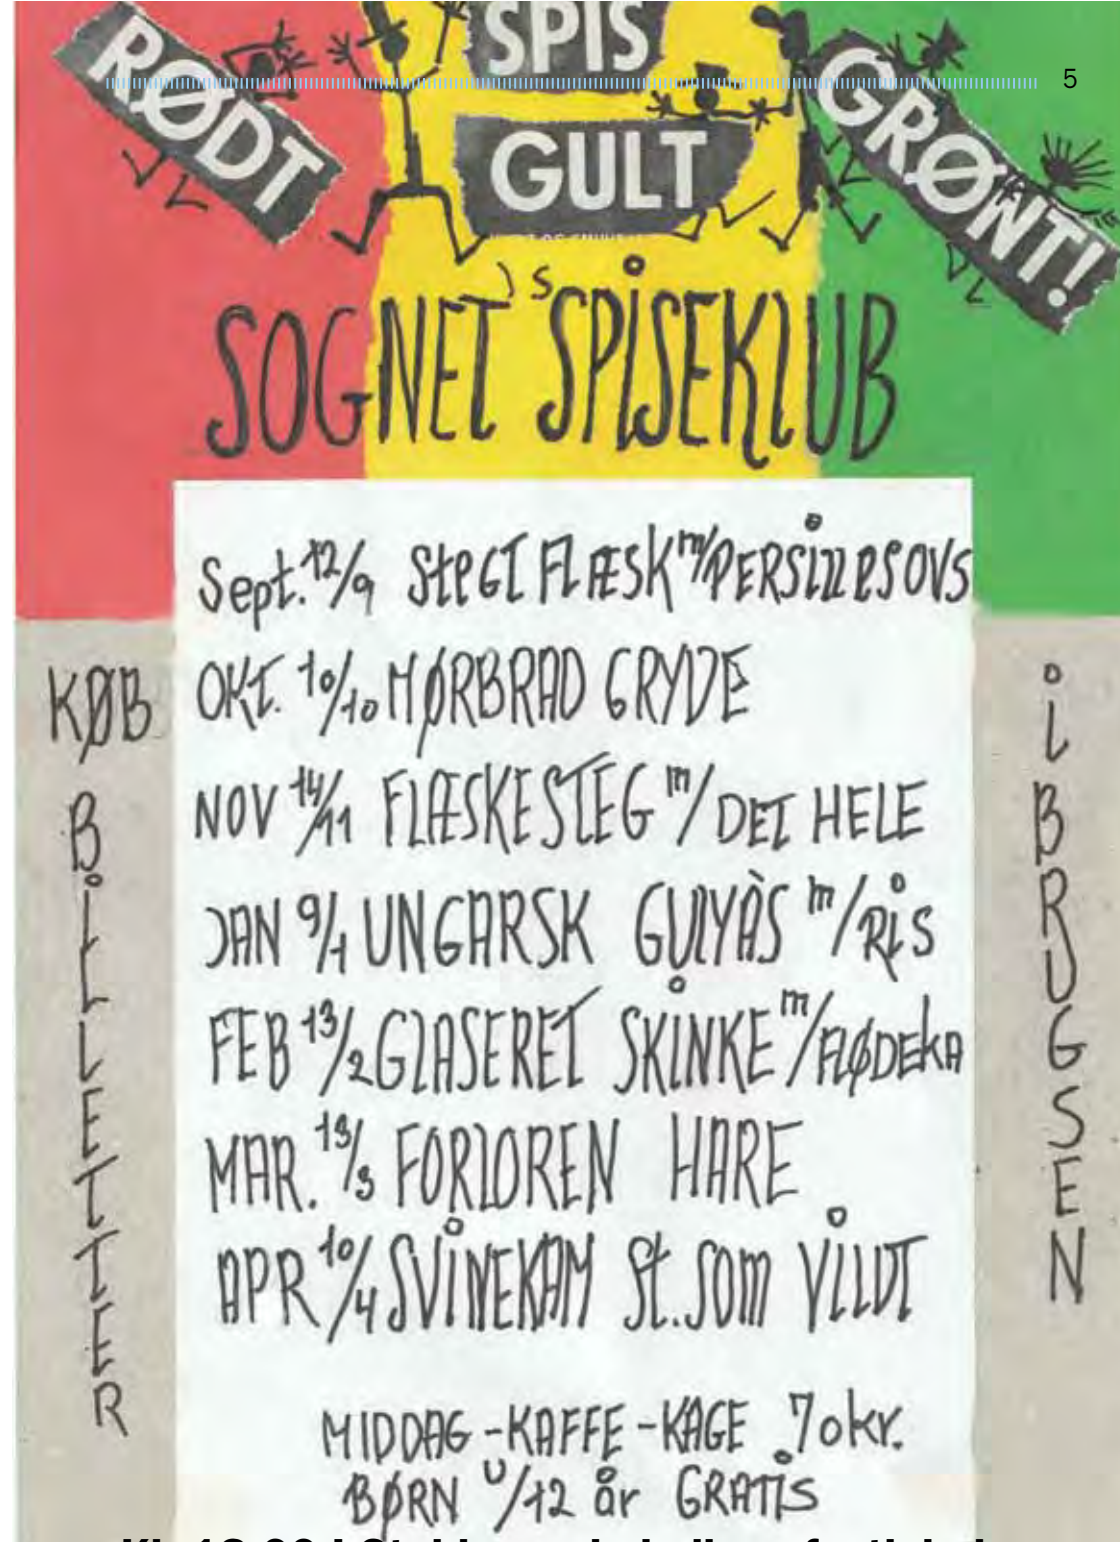 5
RØDT
SPIS
GULT
GRØNT!
SOGNET'S SPISEKLUB
Sept. 12/9 STEGT FLÆSK m/PERSILLESOVS
OKT. 10/10 MØRBRAD GRYDE
NOV 14/11 FLÆSKESTEG m/DET HELE
JAN 9/1 UNGARSK GULYÀS m/RIS
FEB 13/2 GLASERET SKINKE m/FLØDEKA
MAR. 13/3 FORLOREN HARE
APR 10/4 SVINEKAM St. SOM VILDT
MIDDAG - KAFFE - KAGE 70 kr.
BØRN U/12 år GRATIS
KØB
BILLETTER
i
BRUGSEN